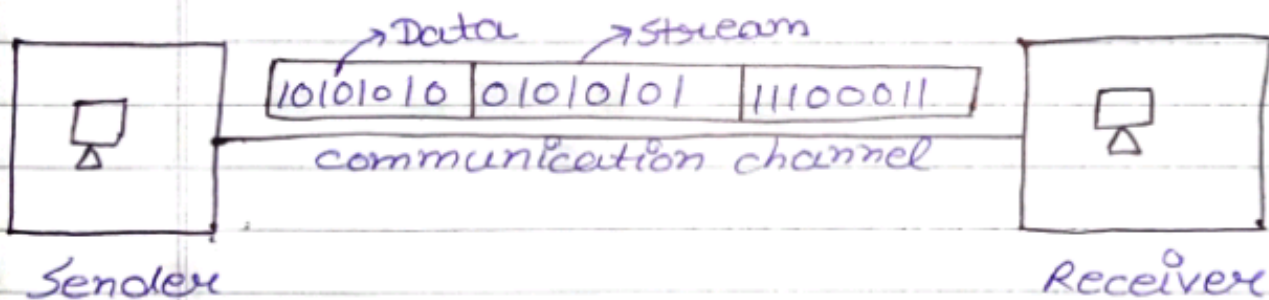 Data Stream
10101010 01010101 11100011
communication channel
Sender Receiver